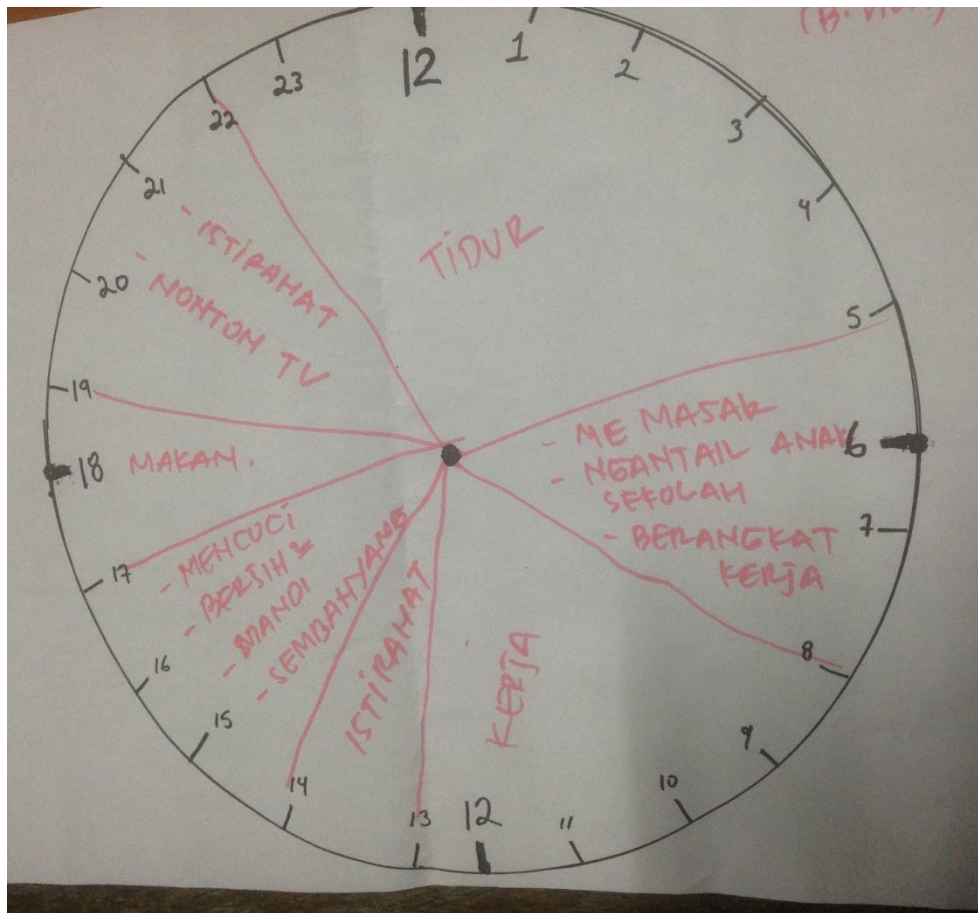 12
1
2
3
4
5
6
7
8
9
10
11
12
13
14
15
16
17
18
19
20
21
22
23
TIDUR
- ME MASAK
- NGANTAIL ANAK
SEKOLAH
- BERANGKAT
KERJA
KERJA
ISTIRAHAT
- MENCUCI
- BERSIH²
- MANDI
- SEMBAHYANG
MAKAN.
- ISTIRAHAT
- NONTON TV